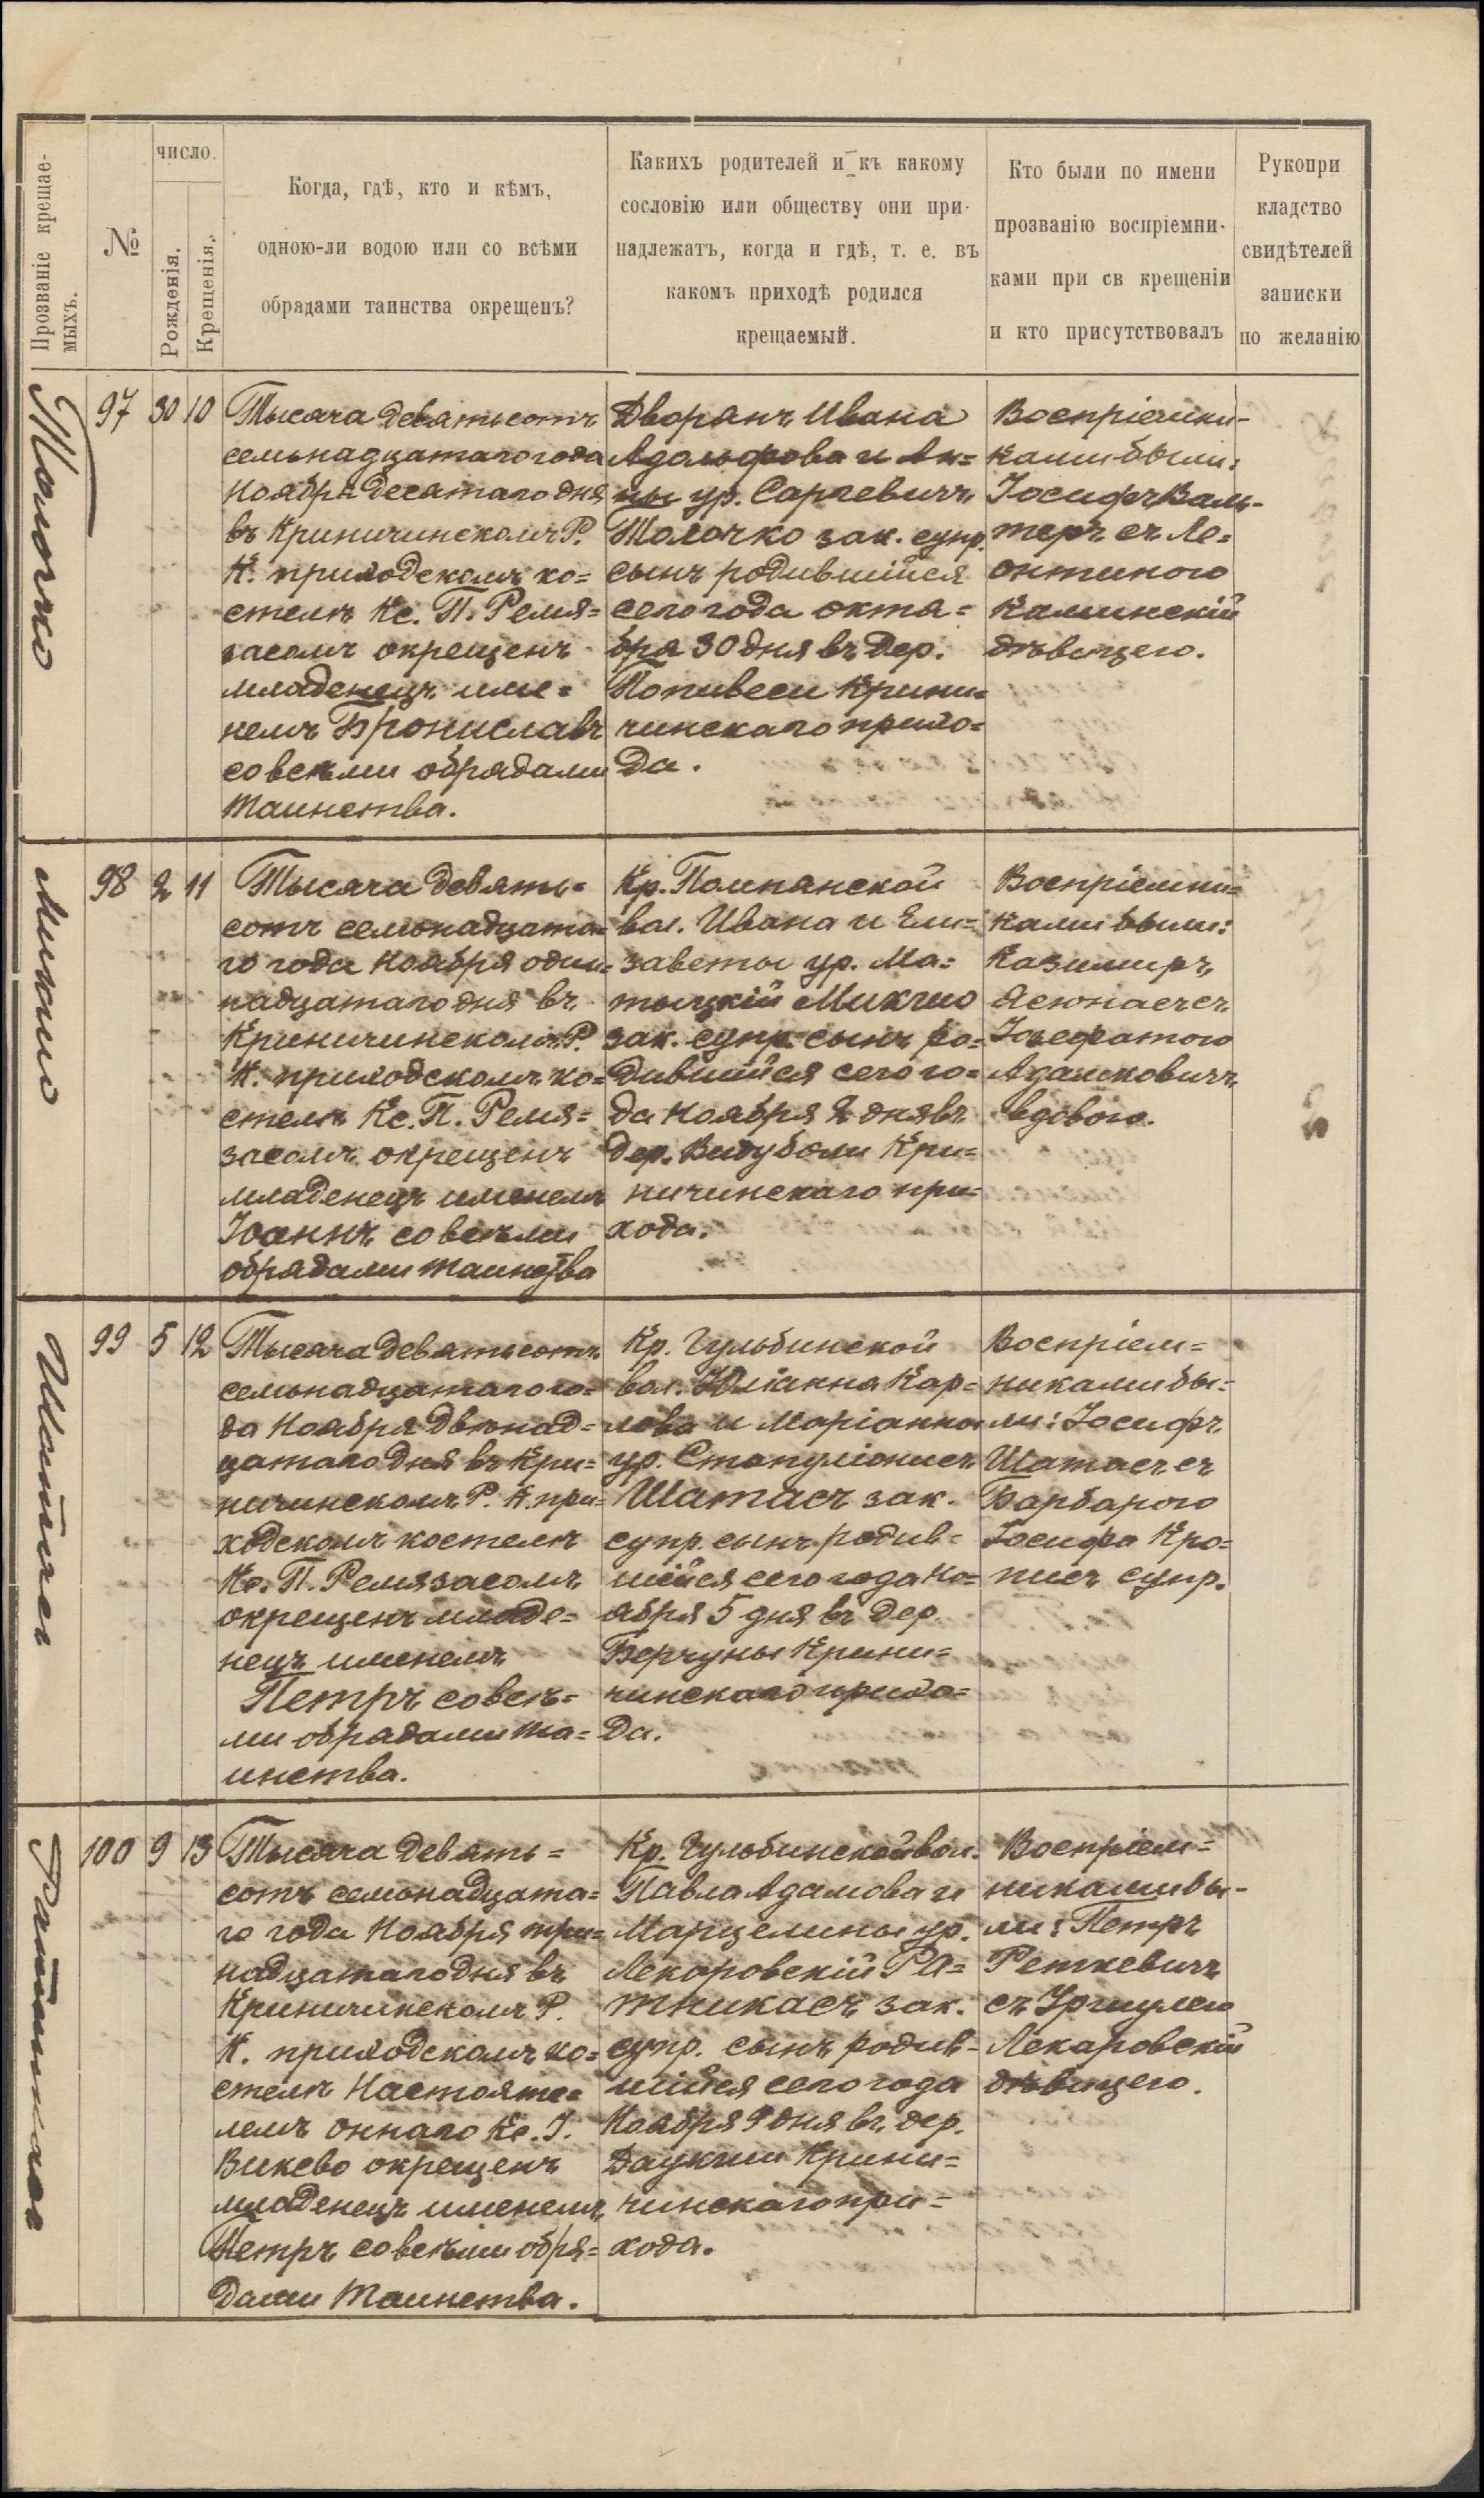 Прозваніе крещае-
мыхъ.
№
число.
Рожденія.
Крещенія.
Когда, гдѣ, кто и кѣмъ,
одною-ли водою или со всѣми
обрядами таинства окрещенъ?
Какихъ родителей и къ какому
сословію или обществу они при-
надлежатъ, когда и гдѣ, т. е. въ
какомъ приходѣ родился
крещаемый.
Кто были по имени
прозванію воспріемни-
ками при св крещеніи
и кто присутствовалъ
Рукопри
кладство
свидѣтелей
записки
по желанію
Толочко
97 30 10
Тысяча девятьсотъ
семьнадцатаго года
Ноября десятаго дня
въ Криничинскомъ Р.
К. приходскомъ ко=
стелѣ Кс. П. Ремя=
засомъ окрещенъ
младенецъ име=
немъ Брониславъ
со всѣми обрядами
таинства.
Дворянъ Ивана
Адольфова и Ан=
ны ур. Саргевичъ
Толочко зак. супр.
сынъ родившійся
сего года октя=
бря 30 дня въ дер.
Попивеси Крини=
чинскаго прихо=
да.
Воспріемни-
ками были:
Іосифъ Валь-
теръ съ Ле=
онтиною
Каминскій
дѣвицею.
Микшо
98 2 11
Тысяча девять=
сотъ семьнадцата=
го года Ноября один=
надцатаго дня въ
Криничинскомъ Р.
К. приходскомъ ко=
стелѣ Кс. П. Ремя=
засомъ окрещенъ
младенецъ именемъ
Іоаннъ со всѣми
обрядами таинства
Кр. Помпянской
вол. Ивана и Ели=
заветы ур. Ма=
тыцкій Микшо
зак. супр. сынъ ро=
дившійся сего го=
да Ноября 2 дня въ
дер. Видуболи Кри=
ничинскаго при=
хода.
Воспріемни=
ками были:
Казимиръ
Ясюнасъ съ
Іозефатою
Адамовичъ
вдовою.
Шатасъ
99 5 12
Тысяча девятьсотъ
семьнадцатаго го=
да Ноября двѣнад=
цатаго дня въ Кри=
ничинскомъ Р. К. при=
ходскомъ костелѣ
Кс. П. Ремязасомъ
окрещенъ младе=
нецъ именемъ
Петръ со всѣ=
ми обрядами та=
инства.
Кр. Гульбинской
вол. Юліанна Кар=
лова и Маріанны
ур. Стапуліонисъ
Шатасъ зак.
супр. сынъ родив=
шійся сего года Но=
ября 5 дня въ дер.
Берчуны Крини=
чинскаго прихо=
да.
Воспріем=
никами бы=
ли: Іосифъ
Шатасъ съ
Барбарою
Іосифа Кро=
писъ супр.
Ратникасъ
100 9 13
Тысяча девять=
сотъ семьнадцата=
го года Ноября три=
надцатаго дня въ
Криничинскомъ Р.
К. приходскомъ ко=
стелѣ Настояте=
лемъ оннаго Кс. І.
Викево окрещенъ
младенецъ именемъ
Петръ со всѣми обря=
дами таинства.
Кр. Гульбинской вол.
Павла Адамова и
Марцелины ур.
Лекаровскій Ра=
тникасъ зак.
супр. сынъ родив=
шійся сего года
Ноября 9 дня въ дер.
Даукши Крини=
чинскаго при=
хода.
Воспріем=
никами бы-
ли: Петръ
Реткевичъ
съ Уршулею
Лекаровскій
дѣвицею.